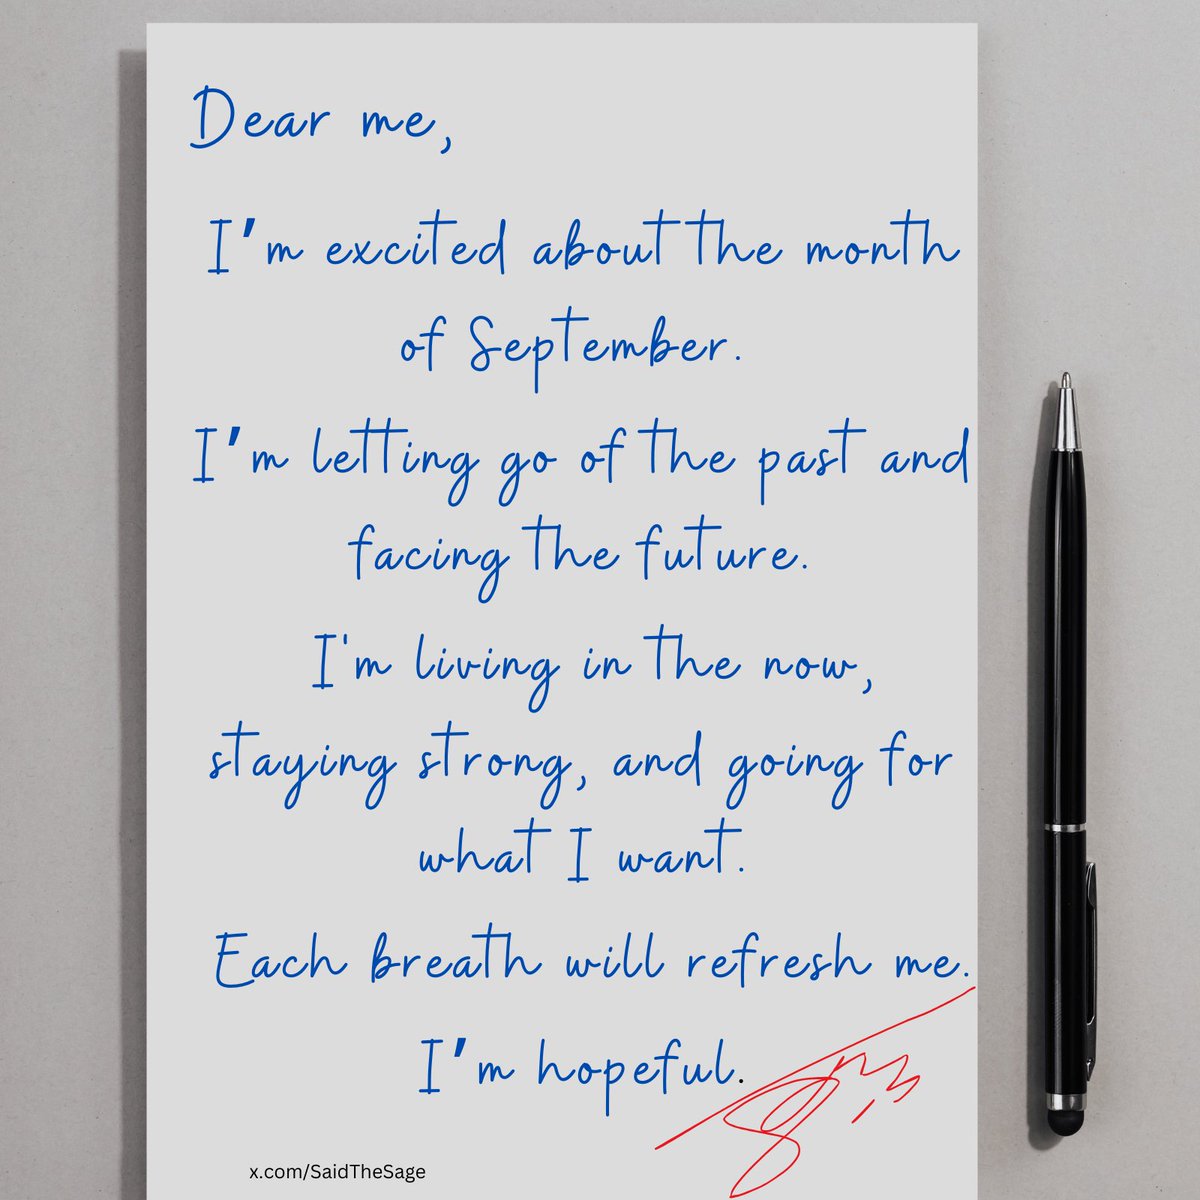 Dear me,
I’m excited about the month
of September.
I’m letting go of the past and
facing the future.
I'm living in the now,
staying strong, and going for
what I want.
Each breath will refresh me.
I’m hopeful.
x.com/SaidTheSage